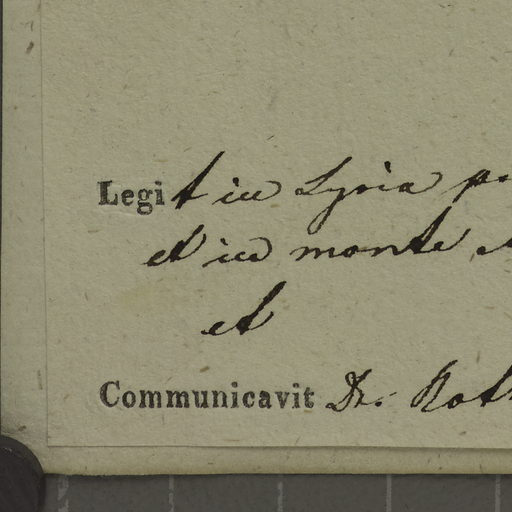 Legit in Syria
et in monte
et
Communicavit Dr. Roth